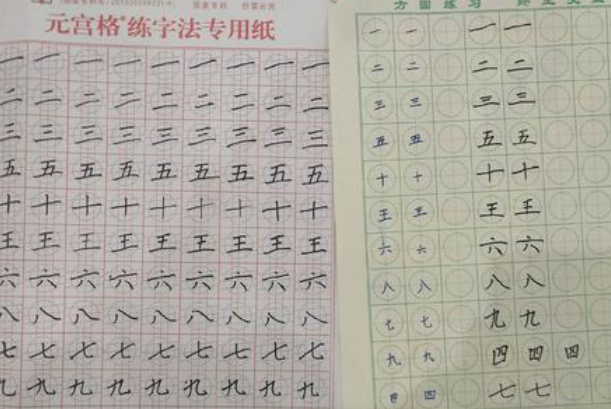 元宫格®练字法专用纸
一一一一一一一一一
二二二二二二二二二
三三三三三三三三三
五五五五五五五五五
十十十十十十十十十
王王王王王王王王王
六六六六六六六六六
八八八八八八八八八
七七七七七七七七七
九九九九九九九九九
方圆练习
一 一 一 一
二 二 二 二
三 三 三 三
五 五 五 五
十 十 十 十
王 王 王 王
六 六 六 六
八 八 八 八
七 七 九 九
九 九 四 四 四
四 四 七 七